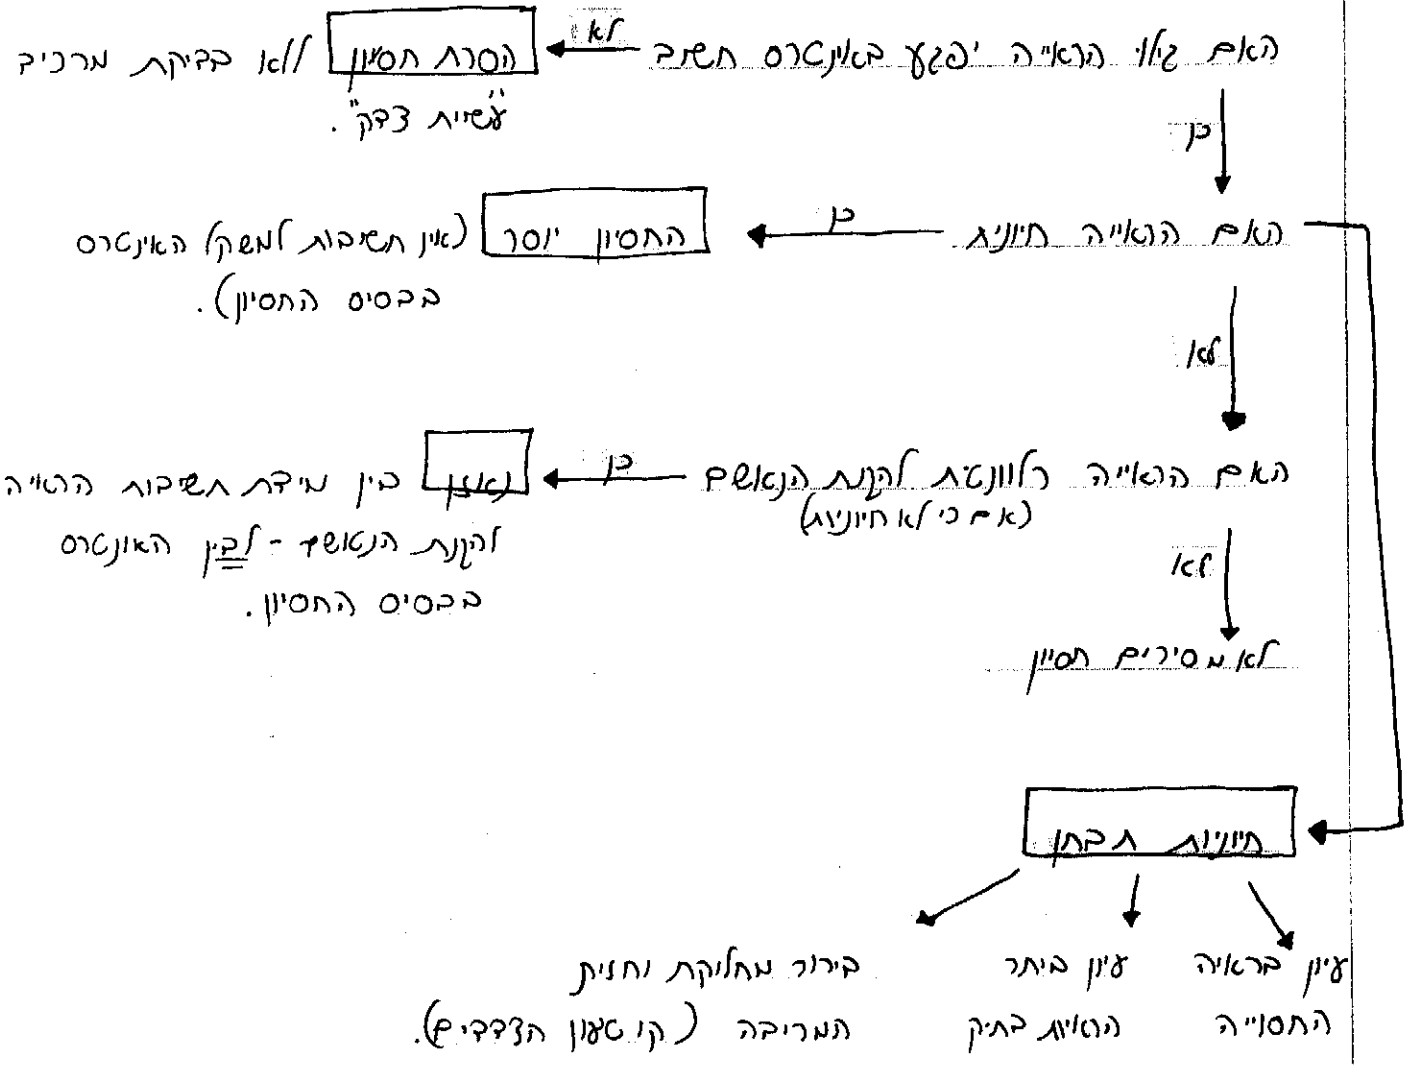 האם גילוי הראייה יפגע באינטרס חשוב לא הסרת חסיון ללא בדיקת מרכיב
"עשיית צדק".
כן
האם הראייה חיונית כן החסיון יוסר (אין חשיבות למשקל האינטרס
בבסיס החסיון).
לא
האם הראייה רלוונטית להגנת הנאשם כן נאזן בין מידת חשיבות הראיה
(אם כי לא חיונית) להגנת הנאשם - לבין האינטרס
בבסיס החסיון.
לא
לא מסירים חסיון
חיוניות תבחן
עיון בראיה עיון ביתר בירור מחלוקת וחזית
החסוייה הראיות בתיק המריבה (קו טעון הצדדים).